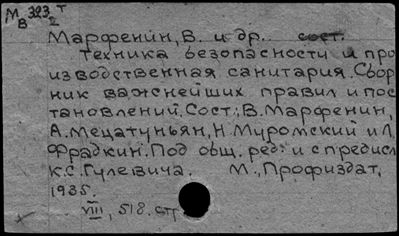 М 323 т
В 2
Марфенин, В. и др.. сост.
Техника безопасности и про
изводственная санитария. Сбор
ник важнейших правил и пос
тановлений. Сост.: В. Марфенин,
А. Мецатуньян, Н. Муромский и Л.
Фрадкин. Под общ. ред. и с предисл
К.С. Гулевича. М., Профиздат,
1935.
VIII, 518. стр